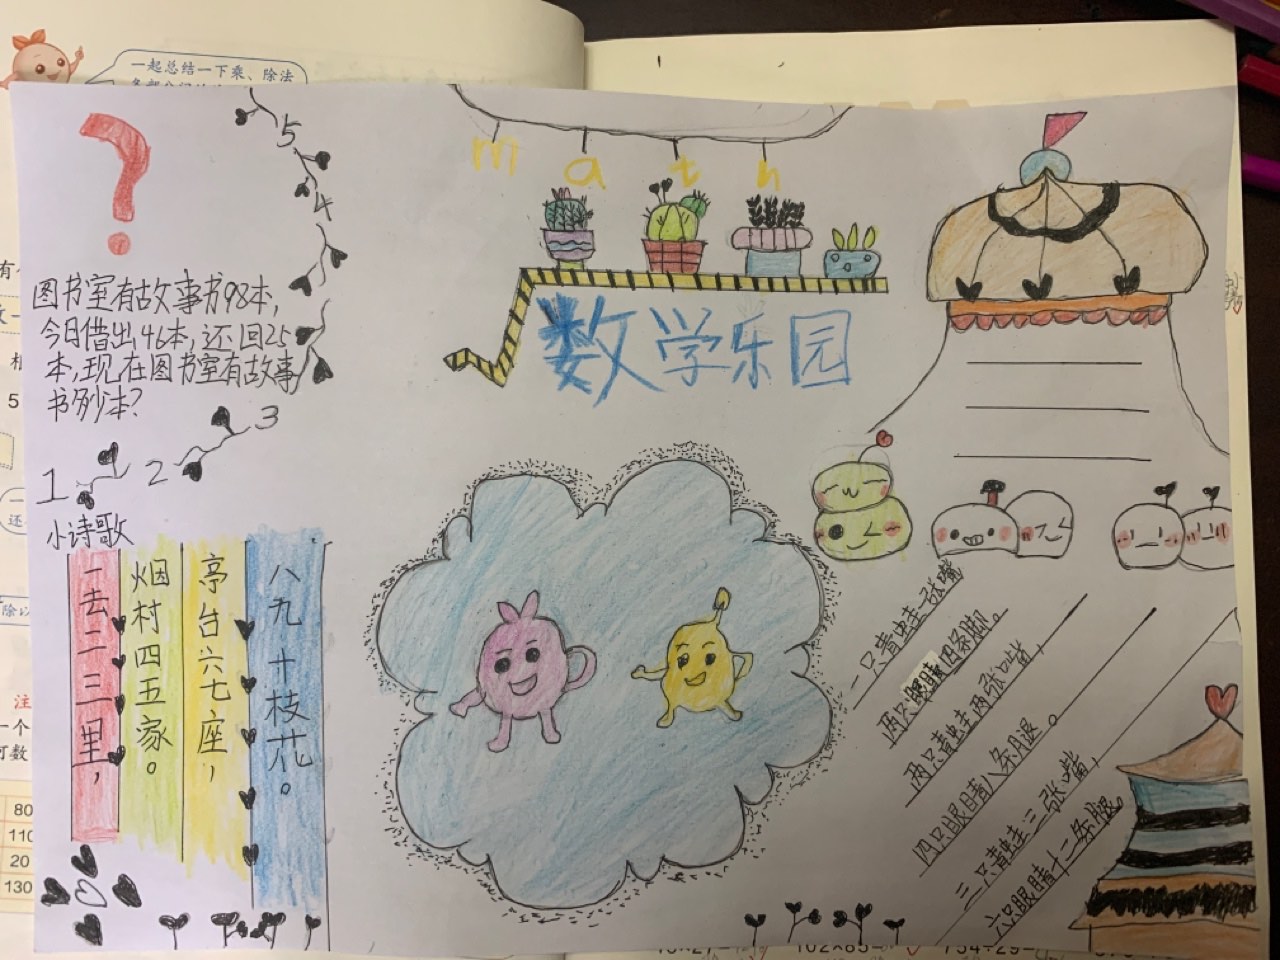 一起总结一下乘、除法
math
数学乐园
5
4
3
2
1
图书室有故事书98本,
今日借出46本,还回25
本,现在图书室有故事
书多少本?
小诗歌
一去二三里,
烟村四五家。
亭台六七座,
八九十枝花。
一只青蛙一张嘴
两只眼睛四条脚。
两只青蛙两张嘴,
四只眼睛八条腿。
三只青蛙三张嘴,
六只眼睛十二条腿。
5
注
一个
可数
80
110
20
130